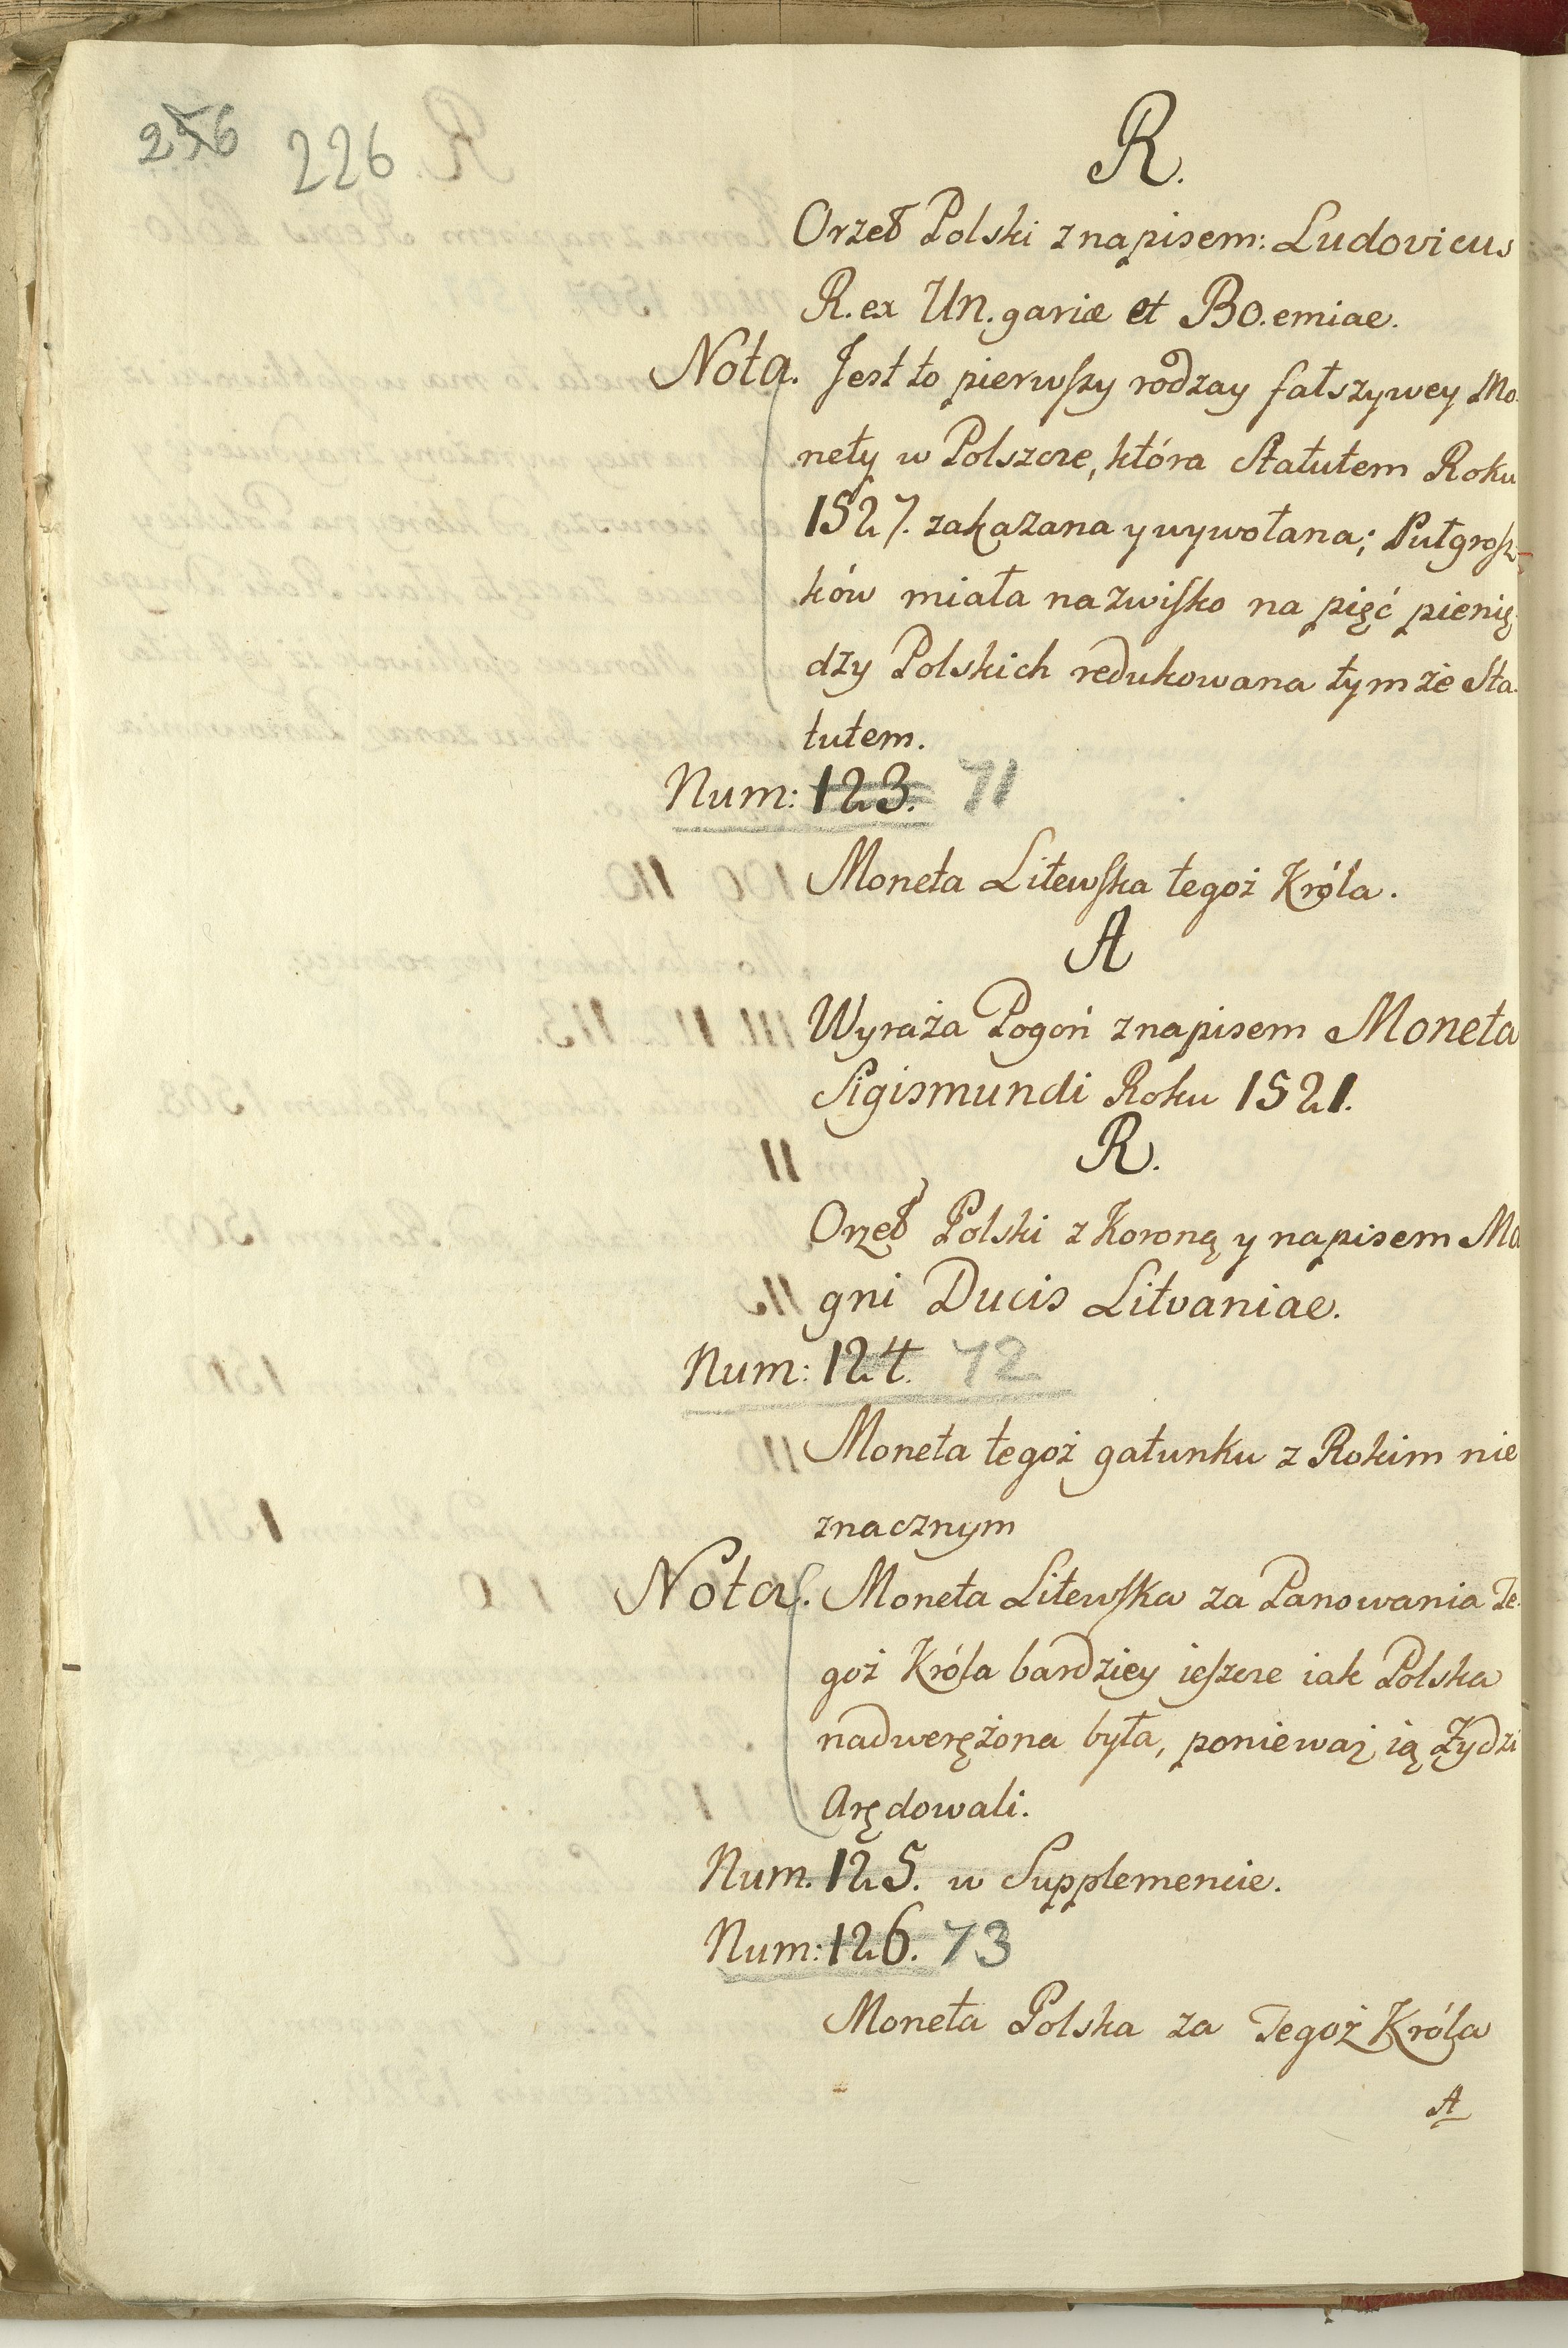 256 226
R.
Orzeł Polski z napisem: Ludovicus
R.ex Un.gariæ et Bo.emiae.
Nota. Jest to pierwſzy rodzay fałszywey Mo-
nety w Polszcze, która Statutem Roku
1527. zakazana y wywołana; Pułgroſz-
ków miała nazwiſko na pięć pienię-
dzy Polskich redukowana tymże Sta-
tutem.
Num: 123. 71
Moneta Litewſka tegoż Króla.
A
Wyraża Pogoń z napisem Moneta
Sigismundi Roku 1521.
R.
Orzeł Polski z Koroną y napisem Ma
gni Ducis Litvaniae.
Num: 124. 72
Moneta tegoż gatunku z Rokim nie
znacznym
Nota. Moneta Litewſka za Panowania Te-
goż Króla bardziey ieſzcze iak Polska
nadwerężona była, poniewaz ią Żydzi
Arędowali.
Num. 125. w Supplemencie.
Num: 126. 73
Moneta Polska za Tegoż Króla
A